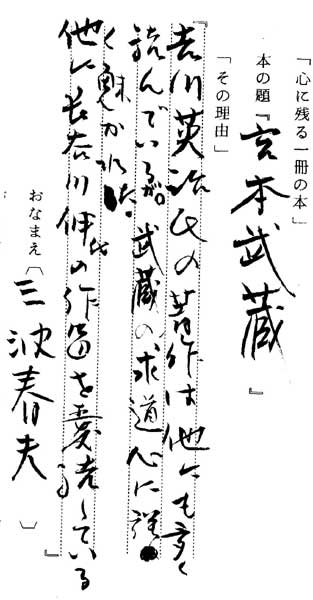 「心に残る一冊の本」
本の題『宮本武蔵』
「その理由」
『吉川英治氏の著作は他にも多く
読んでいるが。武蔵の求道心に強
く魅かれた。
他に長谷川伸氏の作品を愛読している』
おなまえ〔三波春夫〕